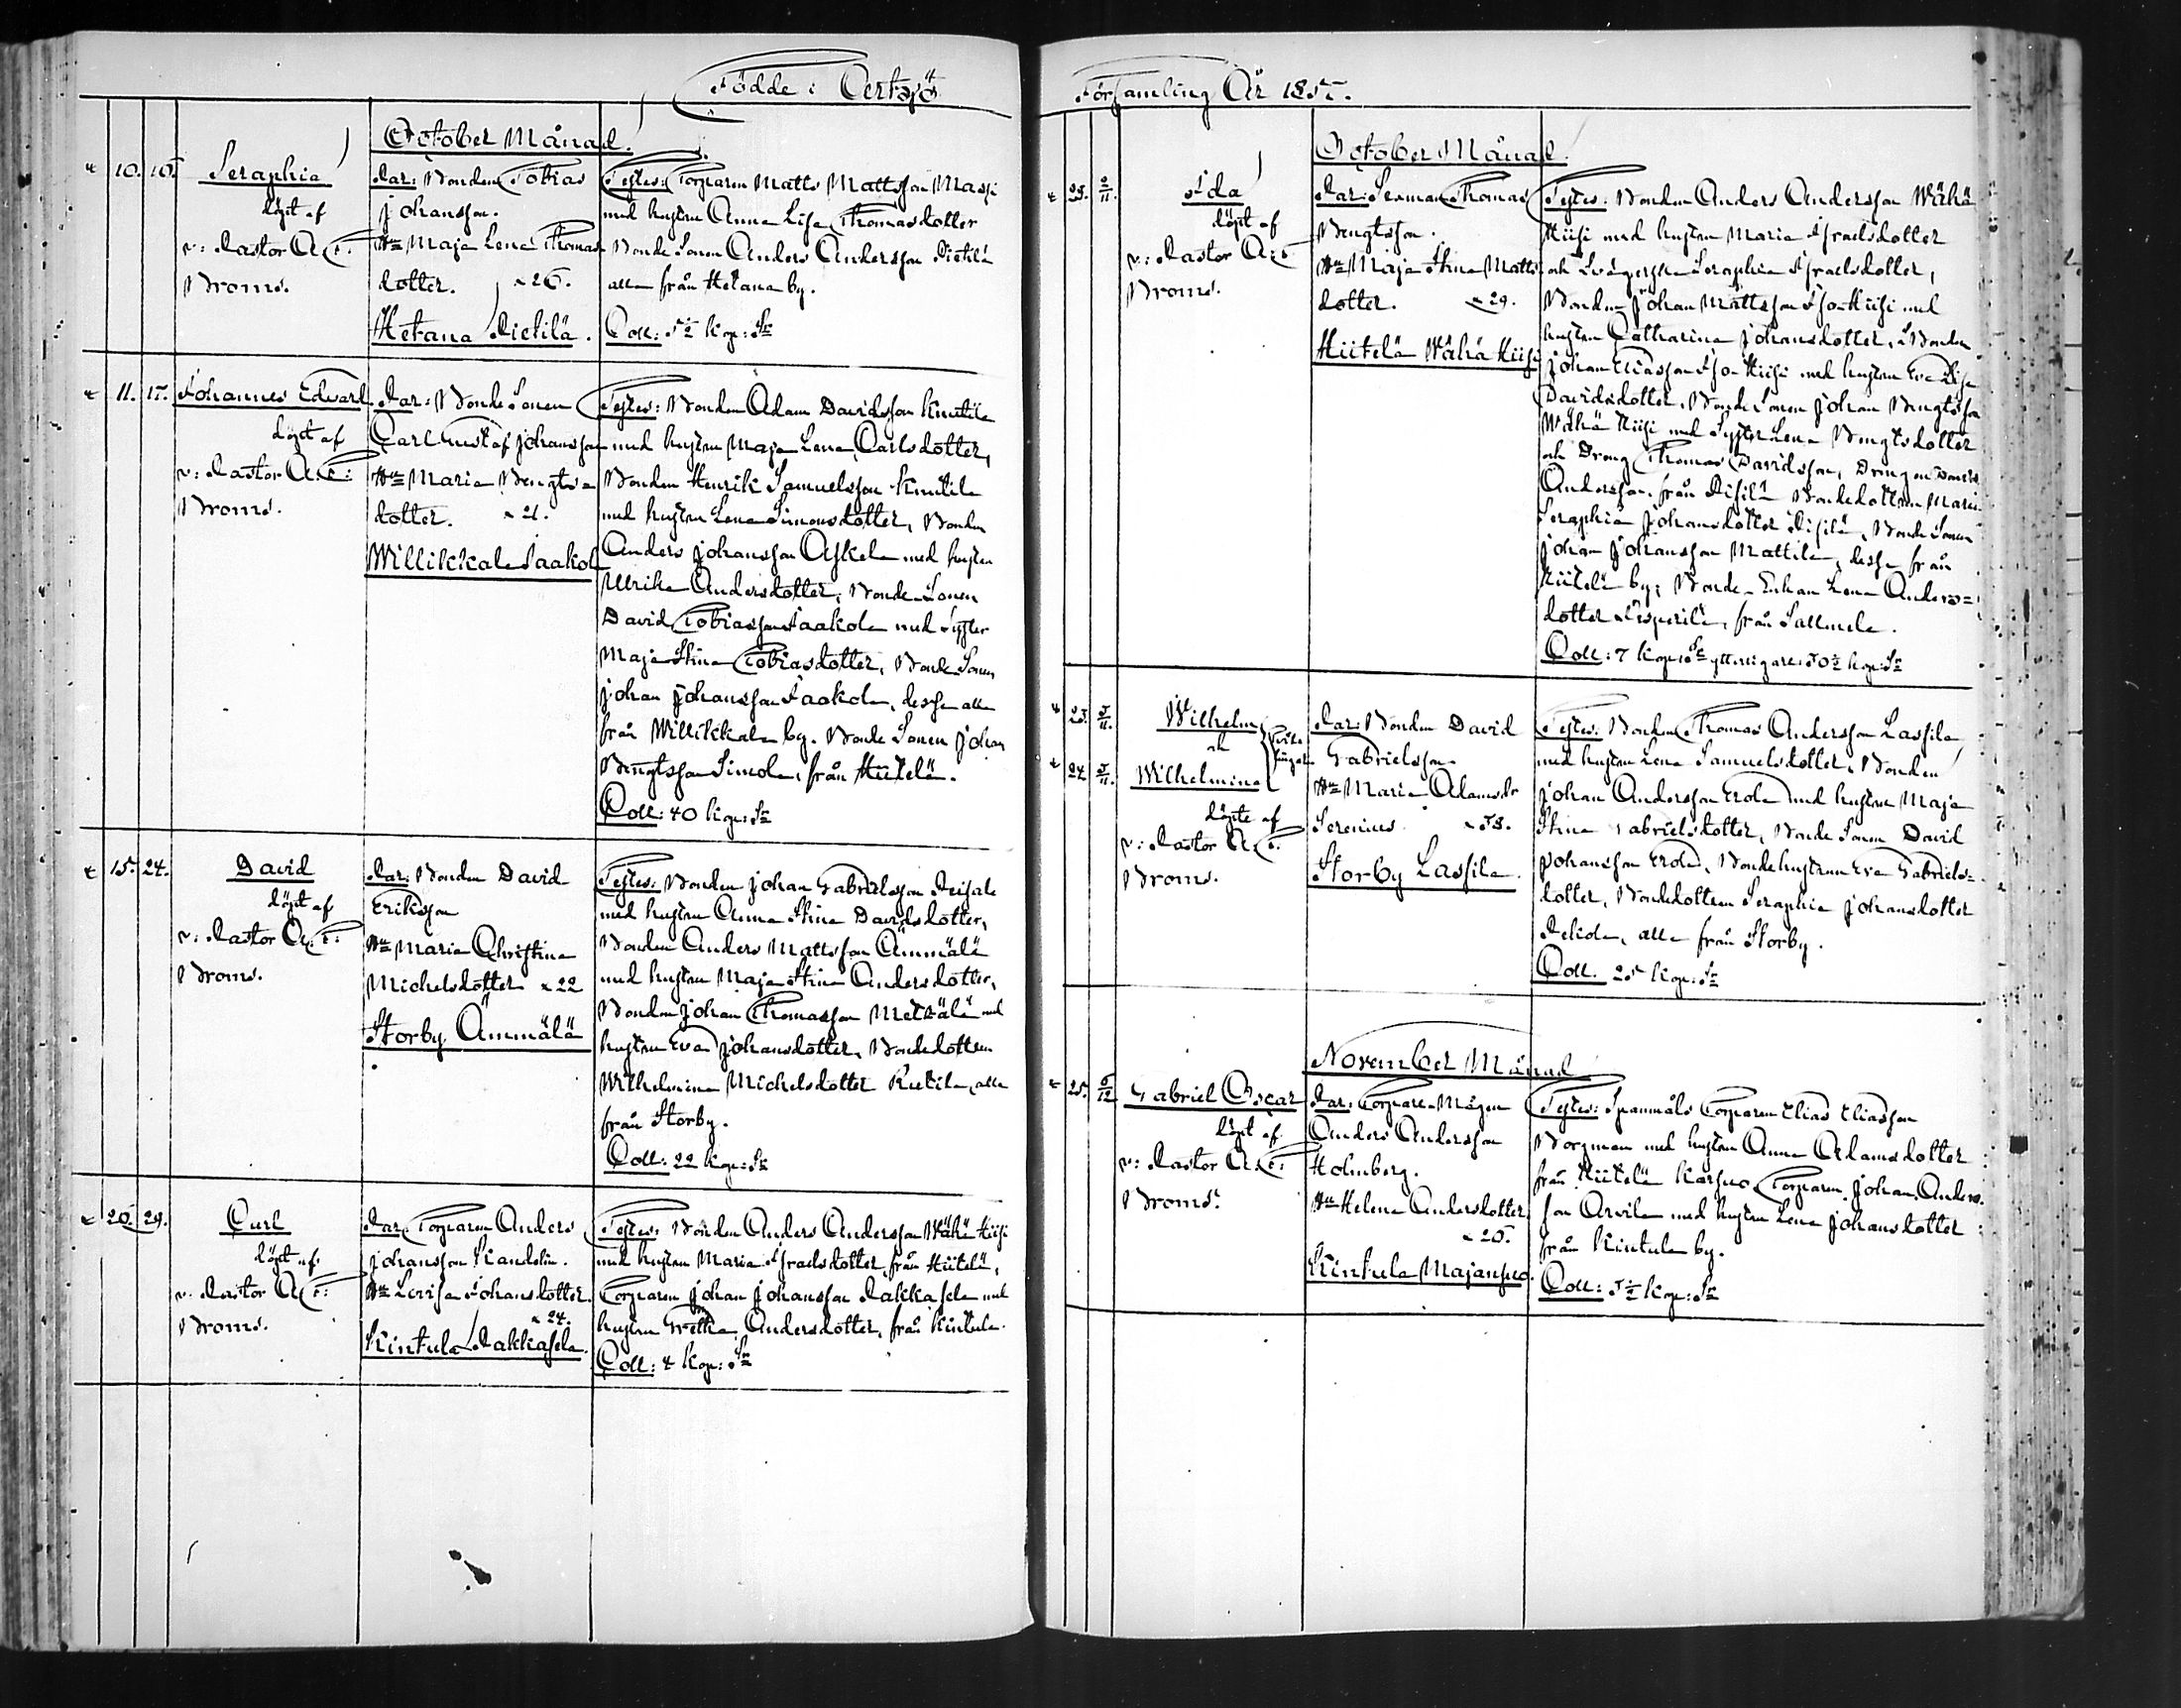 Födde i Artsjö
October Månad.
10. 16. Seraphia
döpt af
v: Pastor A. F.
Broms.
Par: Bonden Tobias
Johansson.
Hu Maja Lena Thomas
dotter. 26.
Hetana Pietilä.
Testes: Torparen Matts Mattsson Massi
med hustru Anna Lisa Thomasdotter
Bonde Sonen Anders Andersson Pietilä
alla från Hetana by.
Coll: 5½ kop: Sr
11. 17. Johannes Edvard
döpt af
v: Pastor A. F.
Broms.
Par: Bonde Sonen
Carl Gustaf Johansson
Hu Maria Bengts-
dotter. 21.
Willikkala Jaakola
Testes: Bonden Adam Davidsson Knutila
med hustru Maja Lena Carlsdotter,
Bonden Henrik Samuelsson Knutila
med hustru Lena Simonsdotter, Bonden
Anders Johansson Askela med hustru
Ulrika Andersdotter, Bonde Sonen
David Tobiasson Jaakola med Syster
Maja Stina Tobiasdotter, Bonde Sonen
Johan Johansson Jaakola, dessa alla
från Willikkala by. Bonde Sonen Johan
Bengtsson Simola, från Hiitelä.
Coll: 40 kop: Sr
15. 24. David
döpt af
v: Pastor A. F.
Broms.
Par: Bonden David
Eriksson
Hu Maria Christina
Michelsdotter 22
Storby Ämmälä
Testes: Bonden Johan Gabrielsson Reisala
med hustru Anna Stina Davidsdotter,
Bonden Anders Mattsson Ämmälä
med hustru Maja Stina Andersdotter,
Bonden Johan Thomasson Metsälä med
hustru Eva Johansdotter, Bondedottren
Wilhelmina Michelsdotter Kutila, alla
från Storby.
Coll: 22 kop: Sr
20. 29. Carl
döpt af
v. Pastor A. F.
Broms.
Par: Torparen Anders
Johansson Kandelin.
Hu Lovisa Johansdotter.
24.
Kintula Pakkasela.
Testes: Bonden Anders Andersson Wähä Hiisi
med hustru Maria Israelsdotter, från Hiitelä,
Torparen Johan Johansson Pakkasela med
hustru Gretha Andersdotter, från Kintula.
Coll: 4 kop: Sr
Församling År 1857.
October Månad.
2/11. Ida
döpt af
v: Pastor A. F.
Broms.
Par: Thomas
Bengtsson.
Hu Maja Stina Matts
dotter. 29.
Hiitelä Wähä Hiisi
Testes: Bonden Anders Andersson Wähä
Hiisi med hustru Maria Israelsdotter
och Svägerskan Seraphia Israelsdotter,
Bonden Johan Mattsson Iso-Hiisi med
hustru Catharina Johansdotter, Bonden
Johan Eliasson Iso Hiisi med hustru Eva Lisa
Davidsdotter, Bonde Sonen Johan Bengtsson
Wähä Hiisi med Syster Lena Bengtsdotter
och Dreng Thomas Davidsson, Drengen David
Andersson från Bondedottren Maria
Seraphia Johansdotter Bonde Sonen
Johan Johansson Mattila, dessa från
Hiitelä by; Bonde-Enkan Lena Anders=
dotter från Salmela.
Coll: 7 kop: Sr ytterligare: 50½ kop: Sr
23. 5/11. Wilhelm
och
24. 5/11. Wilhelmina
döpte af
v: Pastor A. F.
Broms.
Par: Bonden David
Gabrielsson
Hu Maria Adamsdr
Serenius.
Storby Lassila.
Testes: Bonden Thomas Andersson Lassila
med hustru Lena Samuelsdotter, Bonden
Johan Andersson Erola med hustru Maja
Stina Gabrielsdotter, Bonde Sonen David
Johansson Erola, Bondehustrun Eva Gabriels=
dotter, Bondedottren Seraphia Johansdotter
alla från Storby.
Coll. 25 kop: Sr
November Månad
25. 6/12 Gabriel Oscar
döpt af
v: Pastor A. F.
Broms.
Par: Torpare-Mågen
Anders Andersson
Holmberg.
Hu Helena Andersdotter
26.
Kintula Majansuo.
Testes: Spanmåls Torparen Elias Eliasson
Borgman med hustru Anna Adamsdotter
från Hiitelä Karsuo, Torparen Johan Anders-
son Arvila med hustru Lena Johansdotter
från Kintula by.
Coll: 5½ kop: Sr